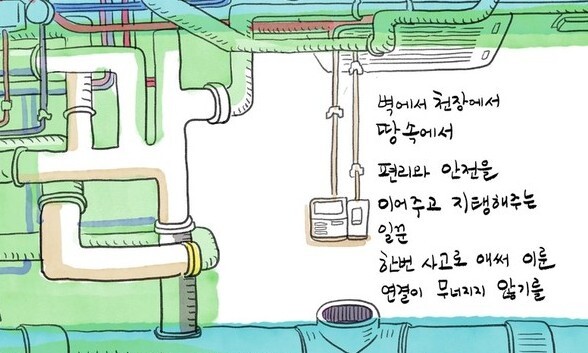 벽에서 천장에서
땅속에서
편리와 안전을
이어주고 지탱해주는
일꾼
한번 사고로 애써 이룬
연결이 무너지지 않기를